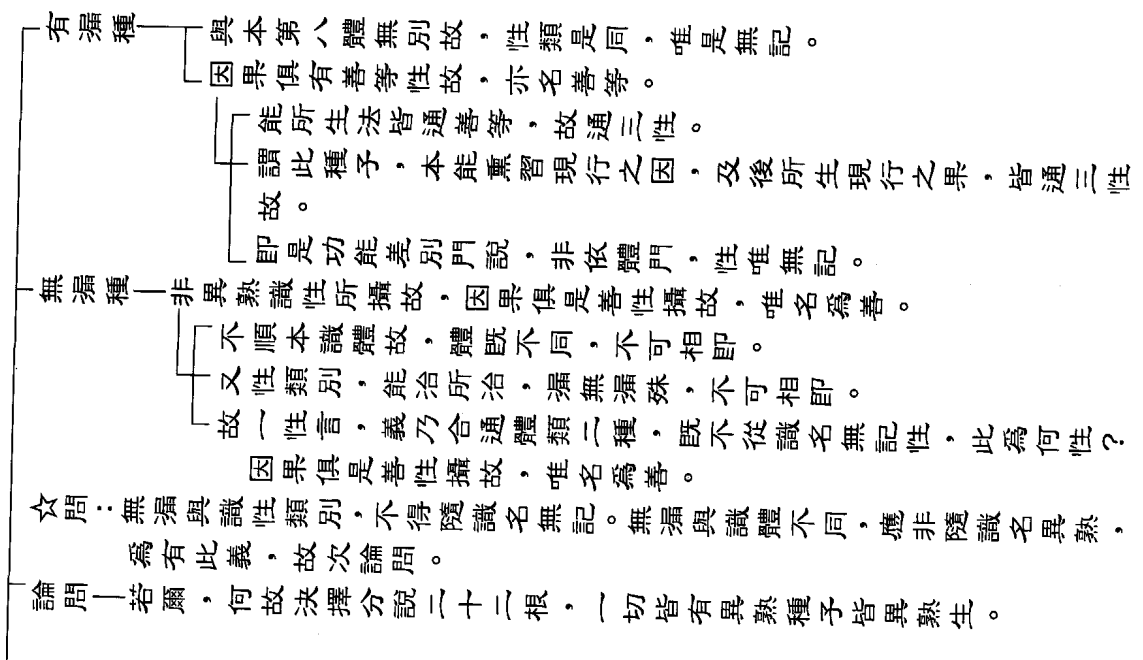 有漏種
與本第八體無別故，性類是同，唯是無記。
因果俱有善等性故，亦名善等。
能所生法皆通善等，故通三性。
謂此種子，本能熏習現行之因，及後所生現行之果，皆通三性
故。
即是功能差別門說，非依體門，性唯無記。
無漏種
非異熟識性所攝故，因果俱是善性攝故，唯名為善。
不順本識體故，體既不同，不可相即。
又性類別，能治所治，漏無漏殊，不可相即。
故一性言，義乃合通體類二種，既不從識名無記性，此為何性？
因果俱是善性攝故，唯名為善。
☆問：無漏與識性類別，不得隨識名無記。無漏與識體不同，應非隨識名異熟，
為有此義，故次論問。
論問
若爾，何故決擇分說二十二根，一切皆有異熟種子皆異熟生。